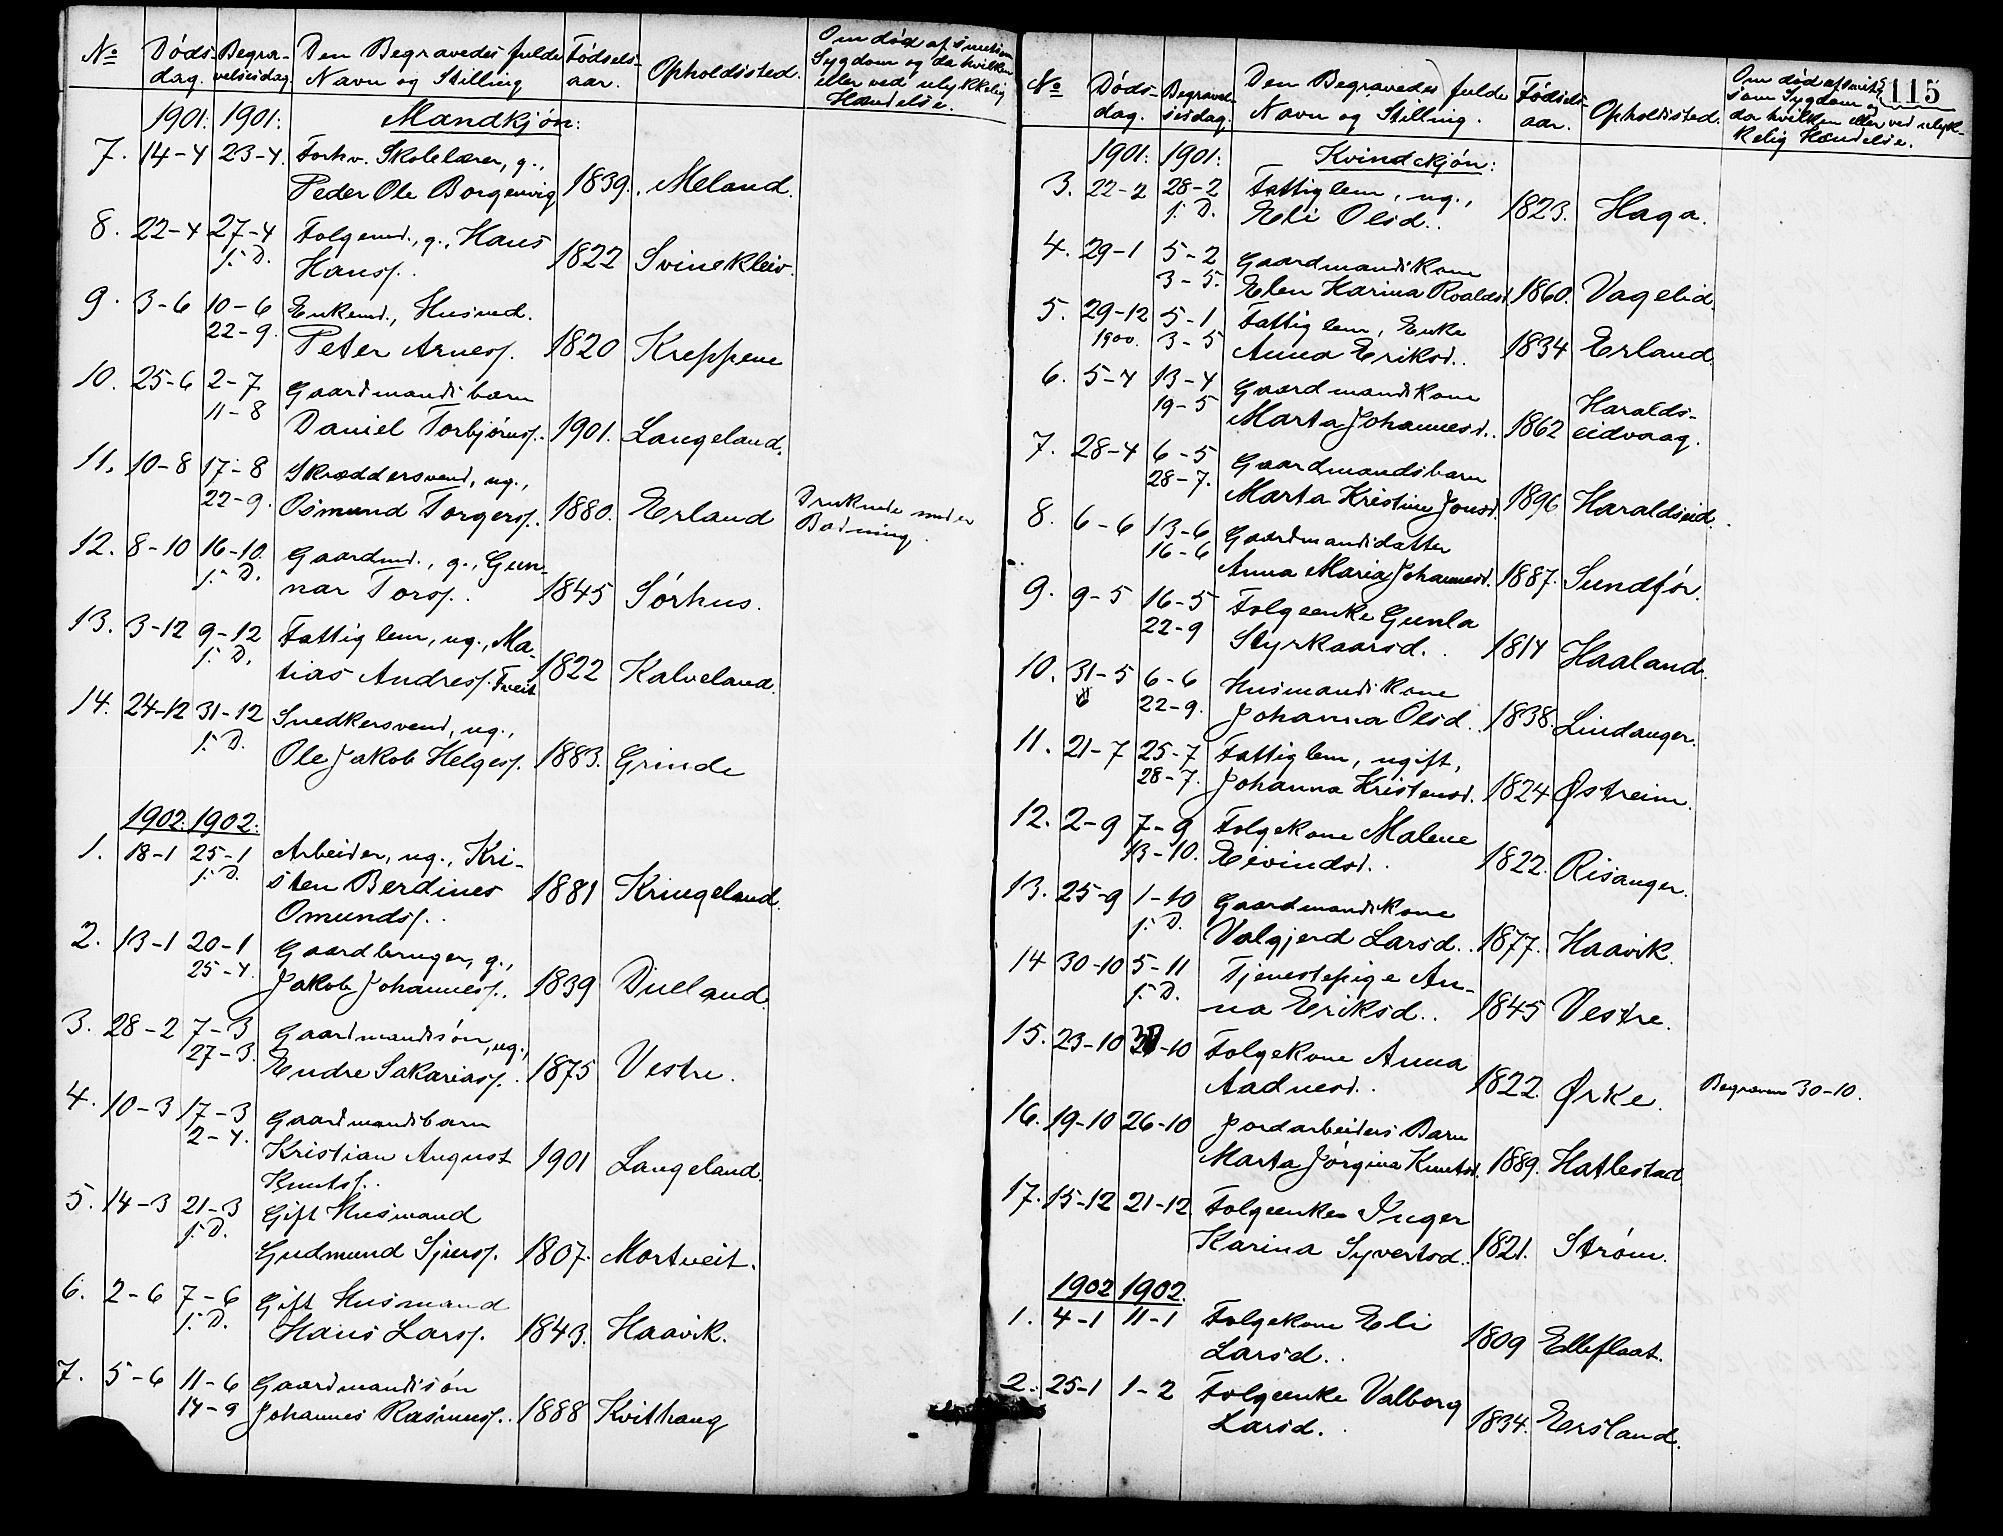 № Døds- Begra- Den Begravedes fulde Fødsels- Opholdssted. Om død af smitsom
dag. velsesdag. Navn og Stilling aar. Sygdom og da hvilken
eller ved ulykkelig
Hændelse.
1901. 1901. Mandkjøn:
7. 14-4 23-4. Forhv. Skolelærer, g.,
Peder Ole Borgenvig 1839. Meland.
8. 22-4 27-4 Folgemd., g., Hans
s. D. Hanss. 1822 Svinekleiv.
9. 3-6 10-6 Enkemd., Husmd.
22-9. Peter Arness. 1820 Kreppene
10. 25-6 2-7 Gaardmandsbarn
11-8 Daniel Torbjørns. 1901. Langeland.
11. 10-8 17-8 Skræddersvend, ug.,
22-9. Osmund Torgers. 1880. Erland Druknede under
Badning.
12. 8-10 16-10. Gaardmd., g., Gun-
s. D. nar Tors. 1845 Sørhus.
13. 3-12 9-12 Fattiglem, ug., Ma-
s. D. tias Andress. Tveit 1822 Kalveland.
14. 24-12 31-12 Snedkersvend, ug.,
s. D. Ole Jakob Helges. 1883. Grinde
1902. 1902.
1. 18-1 25-1 Arbeider, ug., Kri-
s. D. sten Berdines 1881 Kringeland.
Omunds.
2. 13-1 20-1 Gaardbruger, g.,
25-4. Jakob Johanness. 1839 Dueland.
3. 28-2 7-3 Gaardmandssøn, ug.,
27-3. Endre Sakariass. 1875 Vestre.
4. 10-3 17-3 Gaardmandsbarn
2-4. Kristian August 1901 Langeland.
Knuts.
5. 14-3 21-3 Gift Husmand
s. D. Gudmund Sjurs. 1807. Mortveit.
6. 2-6 7-6 Gift Husmand
s. D. Hans Larss. 1843. Haavik.
7. 5-6 11-6 Gaardmandssøn
14-9 Johannes Rasmuss. 1888 Kvithaug
115
№ Døds- Begravel- Den Begravedes fulde Fødsels- Opholdssted. Om død af smit-
dag. sesdag. Navn og Stilling. aar. som Sygdom og
da hvilken eller ved ulyk-
kelig Hændelse.
1901. 1901. Kvindekjøn:
3. 22-2 28-2 Fattiglem, ug.,
s. D. Eli Olsd. 1823. Haga.
4. 29-1 5-2 Gaardmandskone
3-5. Elen Karina Roaldsd. 1860. Vagelid.
5. 29-12 5-1 Fattiglem, Enke
1900. 3-5 Anna Eriksd. 1834 Erland.
6. 5-4 13-4 Gaardmandskone Haralds-
19-5 Marta Johannesd. 1862 eidvaag.
7. 28-4 6-5 Gaardmandsbarn
28-7. Marta Kristine Jonsd. 1896 Haraldseid.
8. 6-6 13-6 Gaardmandsdatter
16-6 Anna Maria Johannesd. 1887. Sundfør.
9. 9-5 16-5 Folgeenke Gunla
22-9 Styrkaarsd. 1814 Haaland.
10. 31-5 6-6 Husmandskone
22-9. Johanna Olsd. 1838. Lindanger.
11. 21-7 25-7 Fattiglem, ugift,
28-7. Johanna Kristensd. 1824 Østreim.
12. 2-9 7-9 Folgekone Malene
13-10. Eivindsd. 1822. Risanger.
13. 25-9 1-10 Gaardmandskone
s. D. Valgjerd Larsd. 1877. Haavik.
14 30-10 5-11 Tjenestepige An-
s. D. na Eriksd. 1845 Vestre.
15. 23-10 30-10 Folgekone Anna
Aadnesd. 1822. Ørke. Begraven 30-10.
16. 19-10 26-10 Jordarbeiders Barn
Marta Jørgina Knutsd. 1889. Hatlestad
17. 15-12 21-12 Folgeenke Inger
Karina Syvertsd. 1821. Strøm.
1902 1902.
1. 4-1 11-1 Folgekone Eli
Larsd. 1809 Elleflaat.
2. 25-1 1-2 Folgeenke Valborg
Larsd. 1834. Ersland.